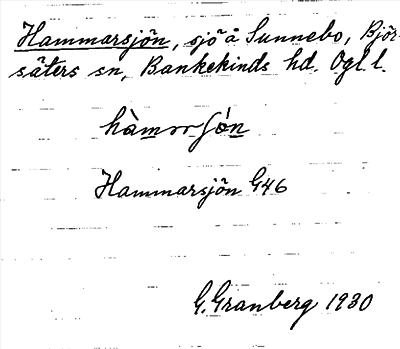 Hammarsjön, sjö å Sunnebo, Björ-
säters sn, Bankekinds hd. Ögl l.
Hammarsjön G46
G. Granberg 1930